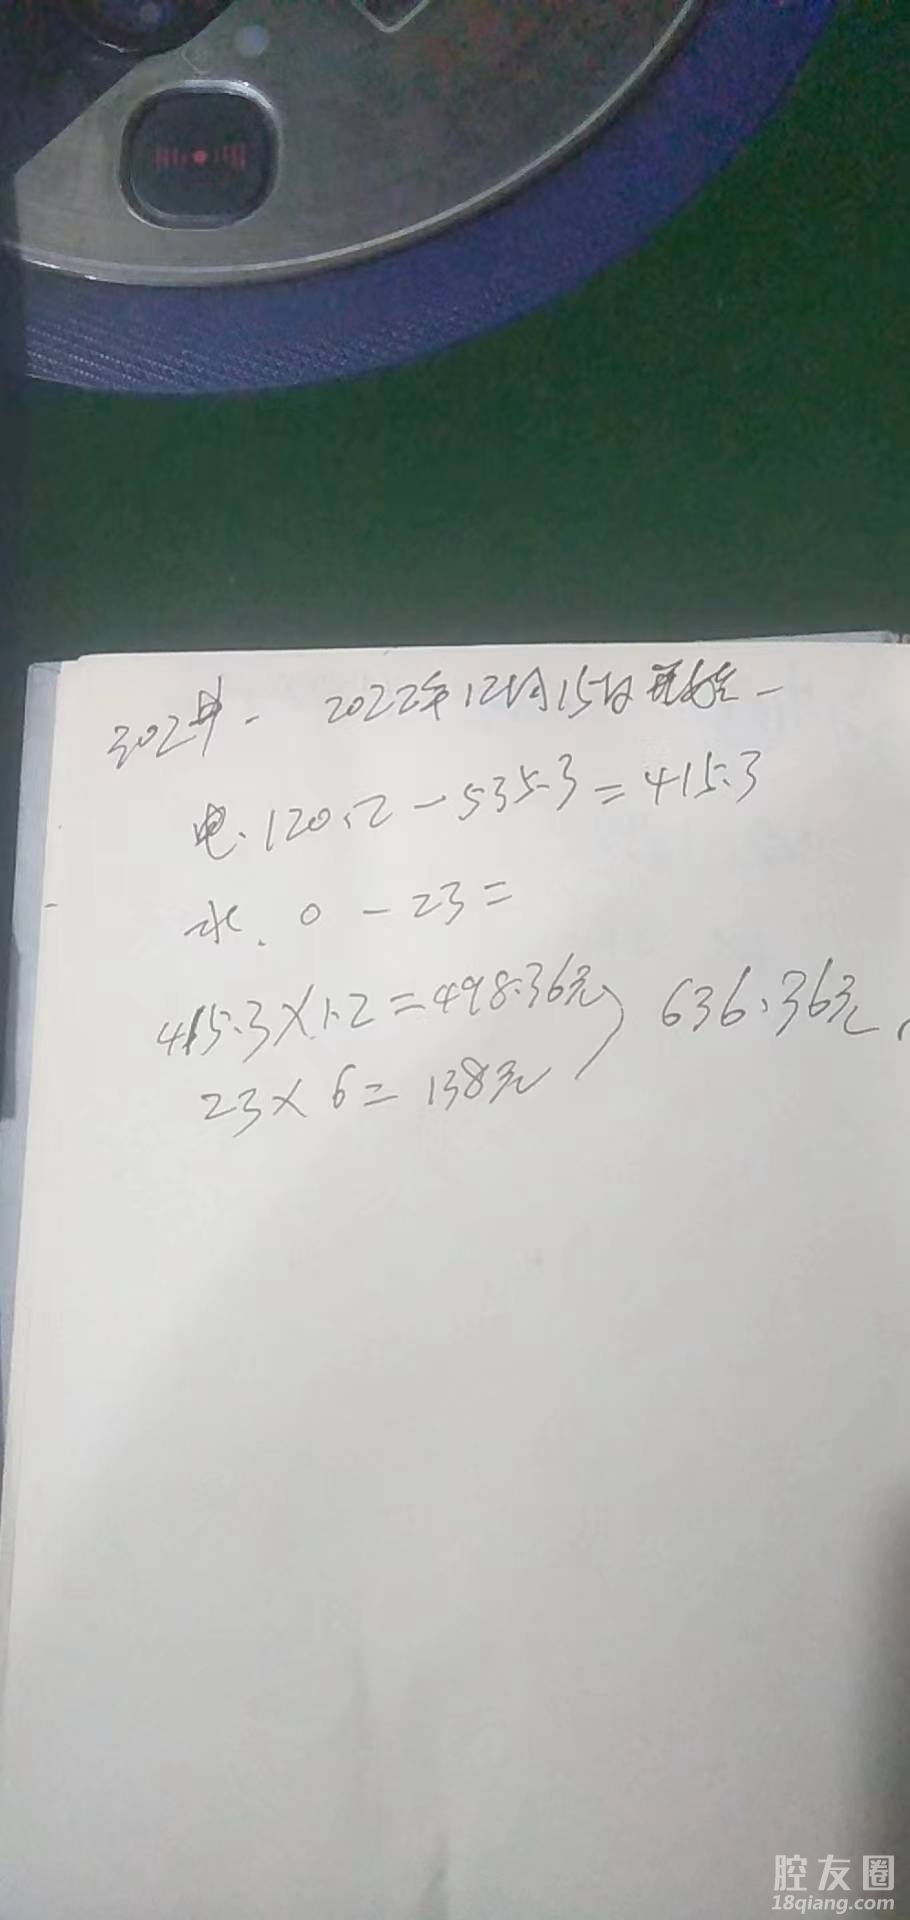 302单 - 2022年12月15日开始 -
电. 120.2 - 535.3 = 415.3
水. 0 - 23 =
415.3 × 1.2 = 498.36元
23 × 6 = 138元
636.36元
腔友圈
18qiang.com